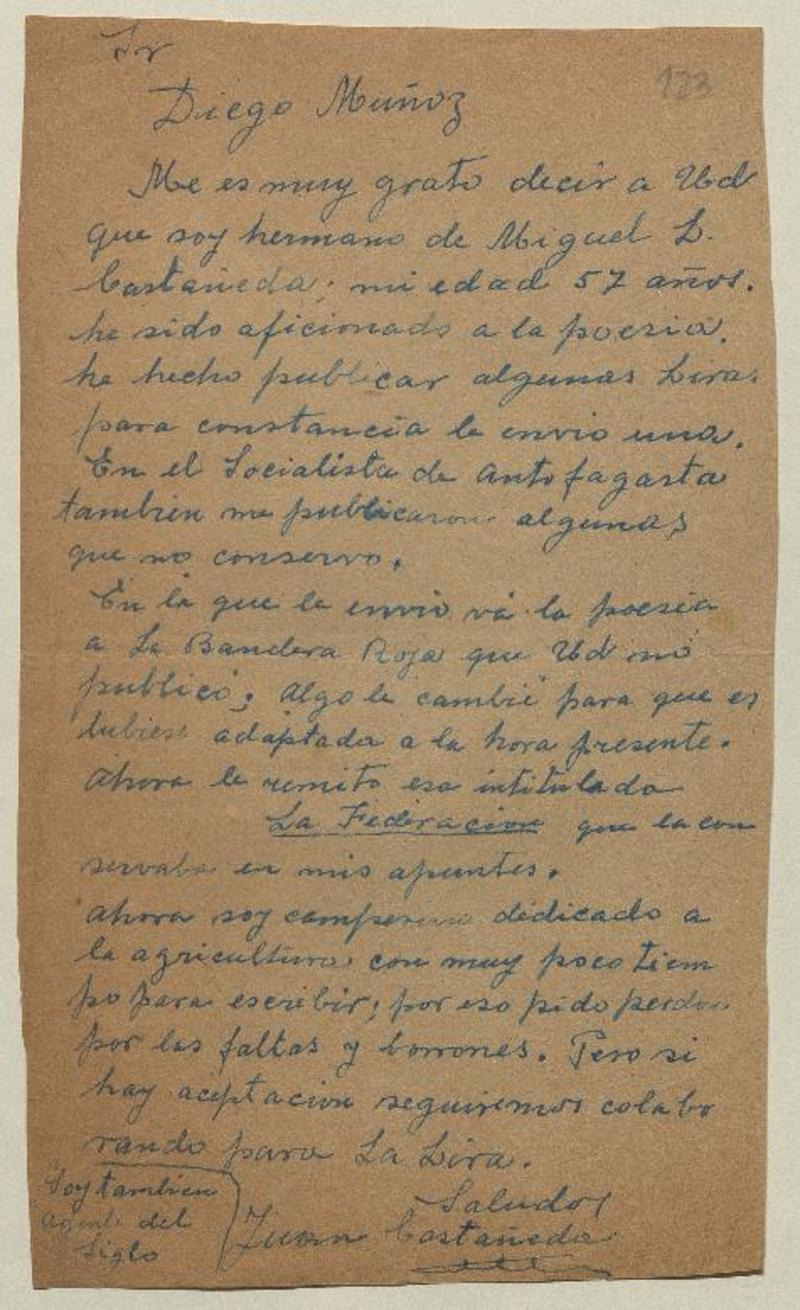 Sr
133
Diego Muñoz
Me es muy grato decir a Ud
que soy hermano de Miguel L.
Castañeda; mi edad 57 años.
he sido aficionado a la poesia.
he hecho publicar algunas Lira.
para constancia le envio una.
En el Socialista de Antofagasta
tambien me publicaron algunas
que no conservo.
En la que le envio vá la poesia
a La Bandera Roja que Ud nó
publicó; Algo le cambié para que es
tubiese adaptada a la hora presente.
Ahora le remito esa intitulada
La Federacion que la con
servaba en mis apuntes.
Ahora soy campesino dedicado a
la agricultura con muy poco tiem
po para escribir; por eso pido perdon
por las faltas y borrones. Pero si
hay aceptacion seguiremos colabo
rando para La Lira.
Saludos
Juan Castañeda
Soy tambien
agente del
Siglo